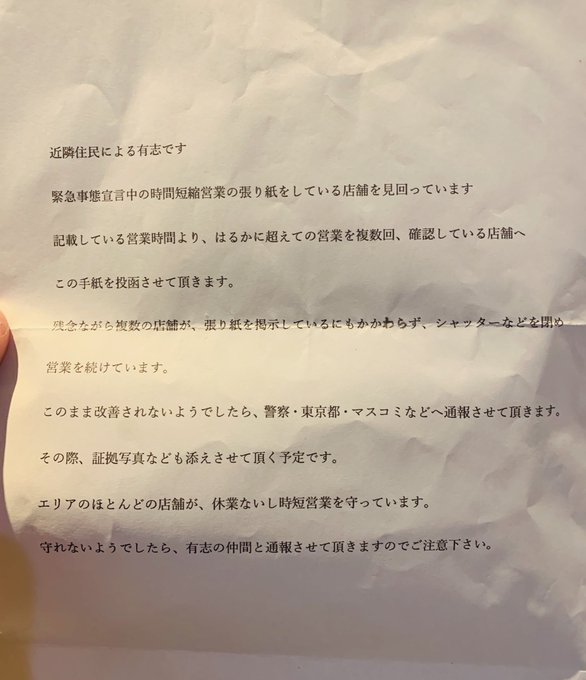 近隣住民による有志です
緊急事態宣言中の時間短縮営業の張り紙をしている店舗を見回っています
記載している営業時間より、はるかに超えての営業を複数回、確認している店舗へ
この手紙を投函させて頂きます。
残念ながら複数の店舗が、張り紙を掲示しているにもかかわらず、シャッターなどを閉め
営業を続けています。
このまま改善されないようでしたら、警察・東京都・マスコミなどへ通報させて頂きます。
その際、証拠写真なども添えさせて頂く予定です。
エリアのほとんどの店舗が、休業ないし時短営業を守っています。
守れないようでしたら、有志の仲間と通報させて頂きますのでご注意下さい。